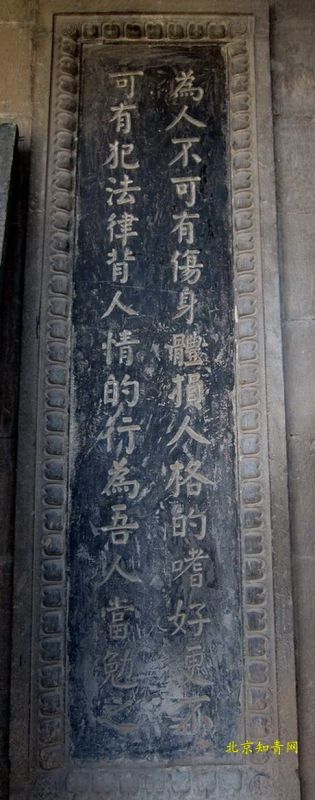 為人不可有傷身體損人格的嗜好更不
可有犯法律背人情的行為吾人當勉之
北京知青网